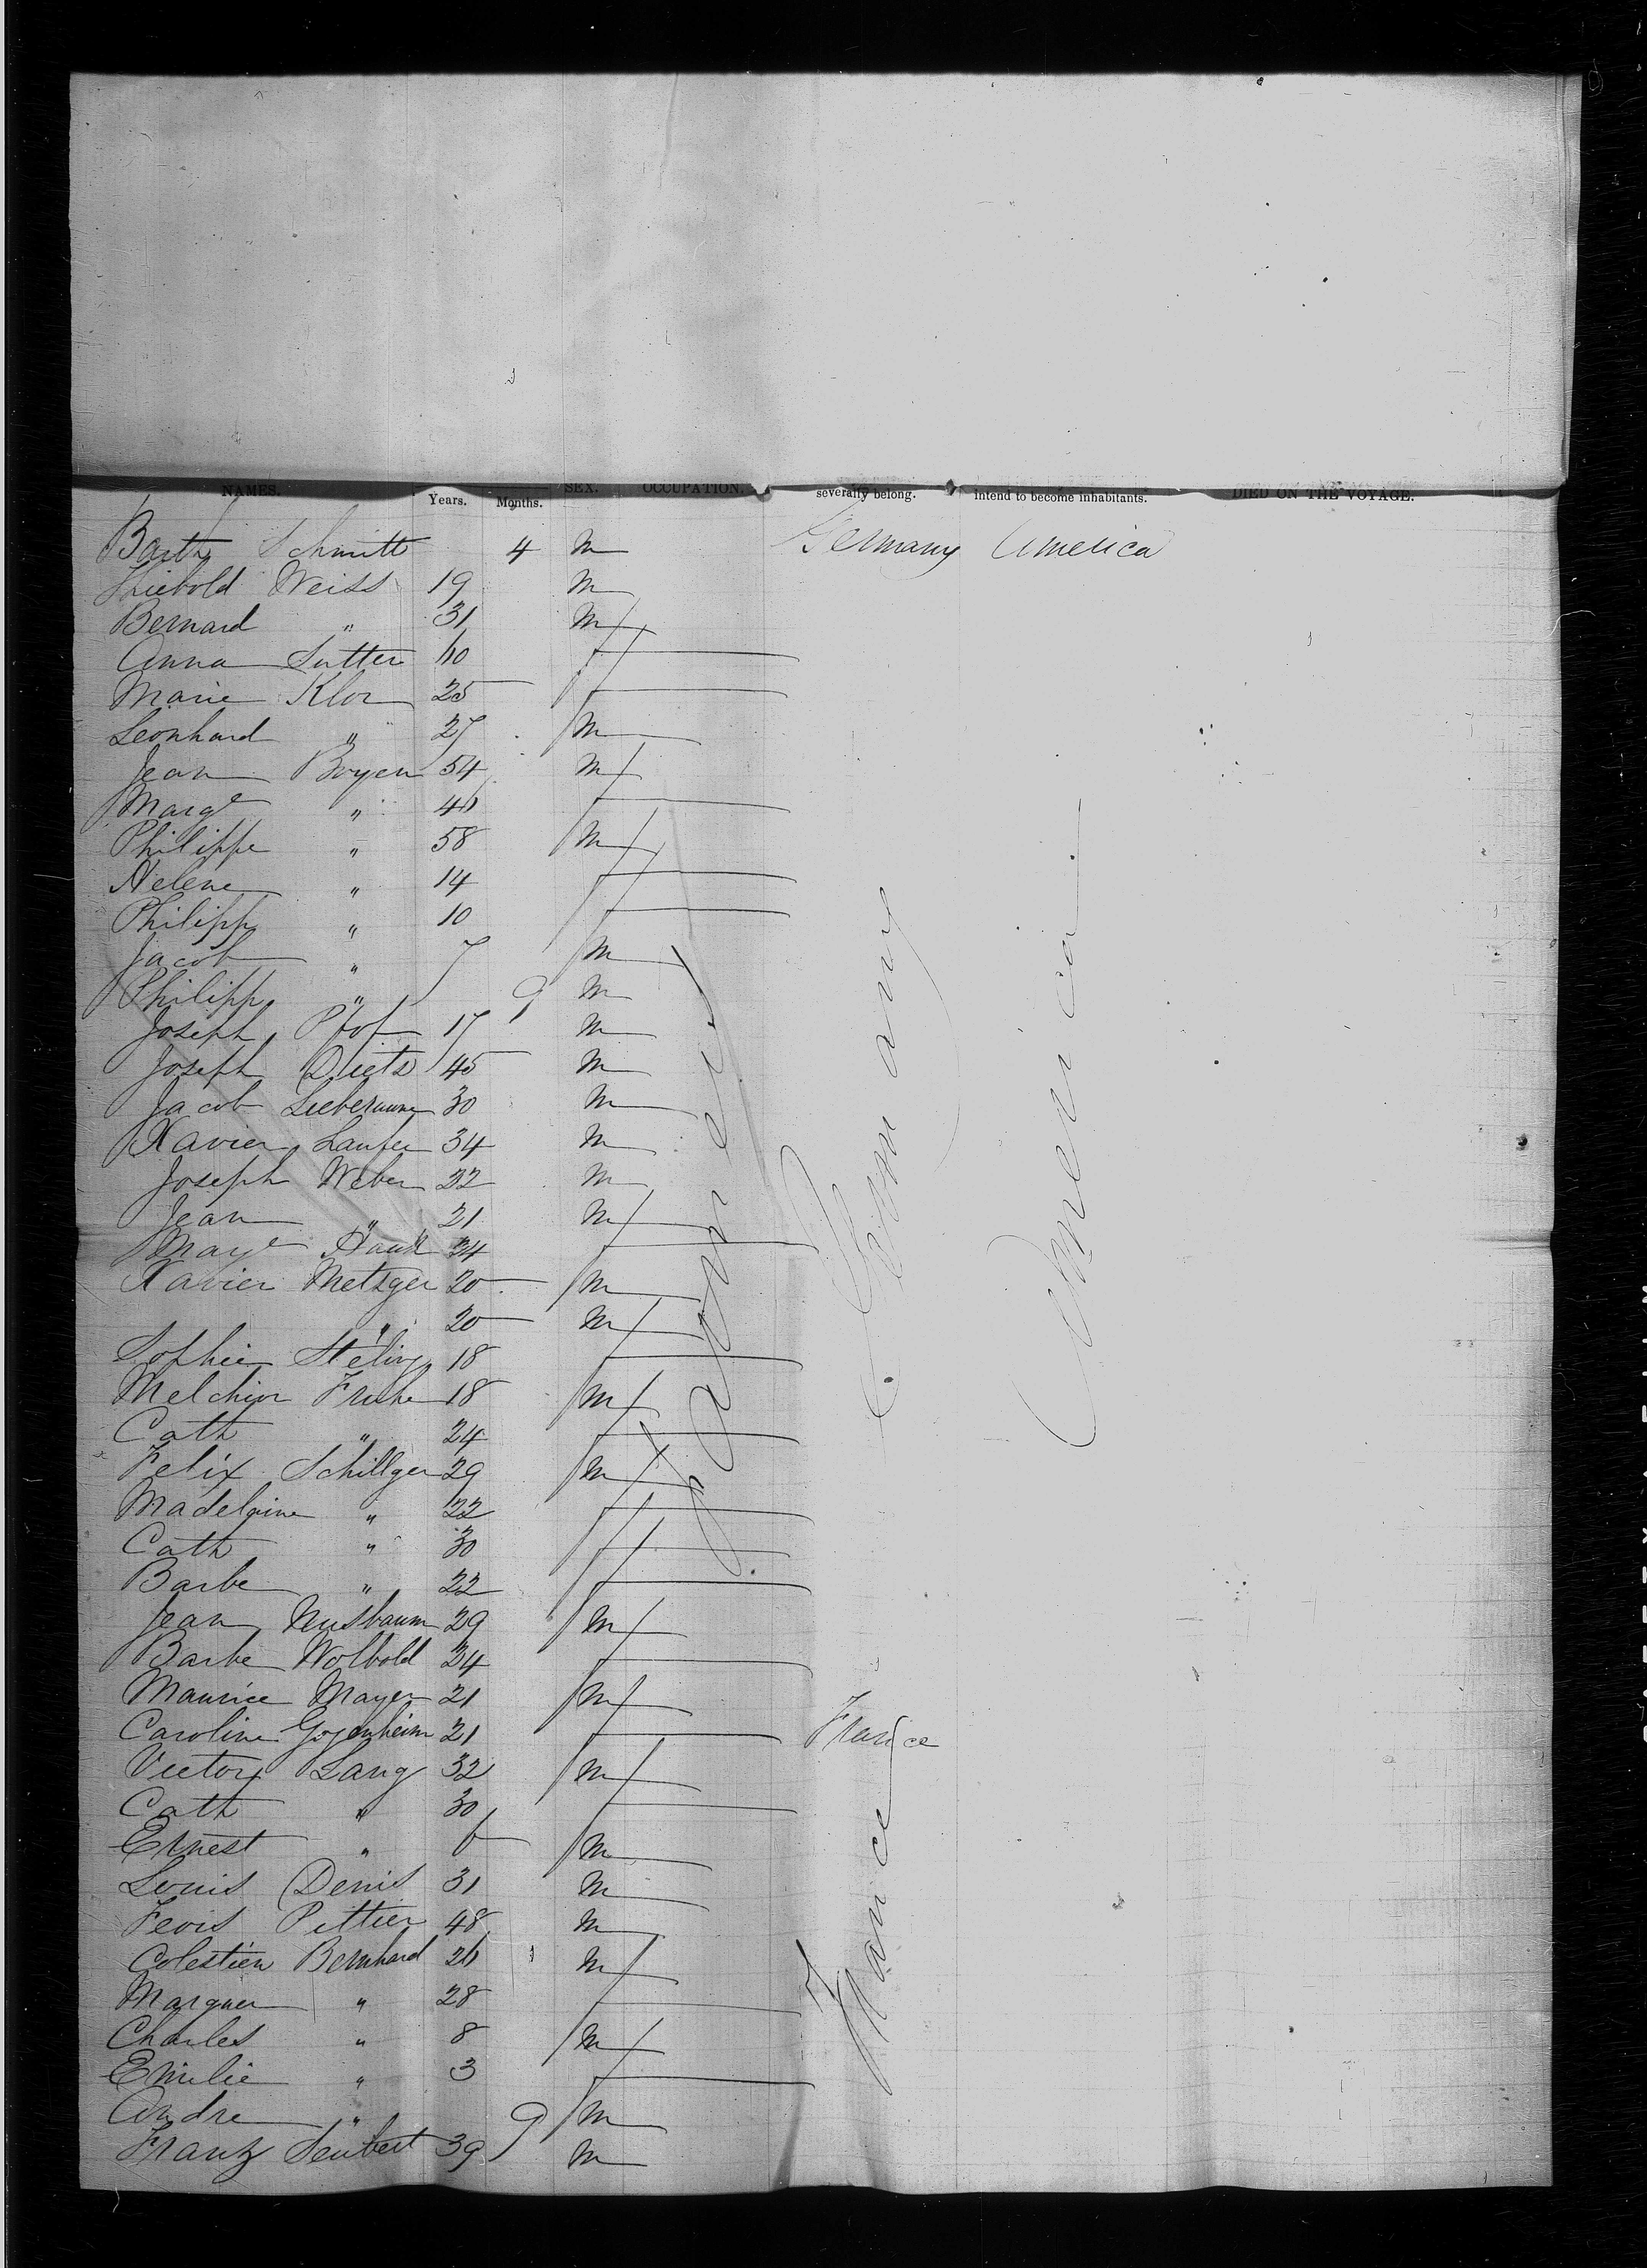 NAMES. Years. Months. SEX. OCCUPATION. severally belong. intend to become inhabitants. DIED ON THE VOYAGE.
Barth Schmitt 4 m Germany America
Thiebold Weiss 19 m
Bernard " 31 m
Anna Sutter 40 f
Marie Klor 25 f
Leonhard " 27 m
Jean Boyer 54 m
Marge " 41 f
Philippe " 58 m
Helene " 14 f
Philipp " 10 f
Jacob " 7 m
Philipp " 9 m
Joseph Pfof 17 m
Joseph Diets 45 m
Jacob 30 m
Xavier Laufer 34 m
Joseph Weber 22 m
Jean " 21 m
Marge Hauk 34 f
Xavier Metzger 20 m
" 20 m
Sophie 18 f
Melchior Fruhe 18 m
Cath " 24 f
Felix Schillger 29 m
Madelaine " 22 f
Cath " 30 f
Barbe " 22 f
Jean Nusbaum 29 m
Barbe Wolbold 24 f
Maurice Mayer 21 m
Caroline Gogenheim 21 f France
Victor Lang 32 m
Cath " 30 f
Ernest " 6 m
Louis Denis 31 m
Pettier 48 m
Colestien Bernhard 26 m
Marguer " 28 f
Charles " 8 m
Emilie " 3 f
Andre " 9 m
Franz Seubert 39 m
Germany
America
France